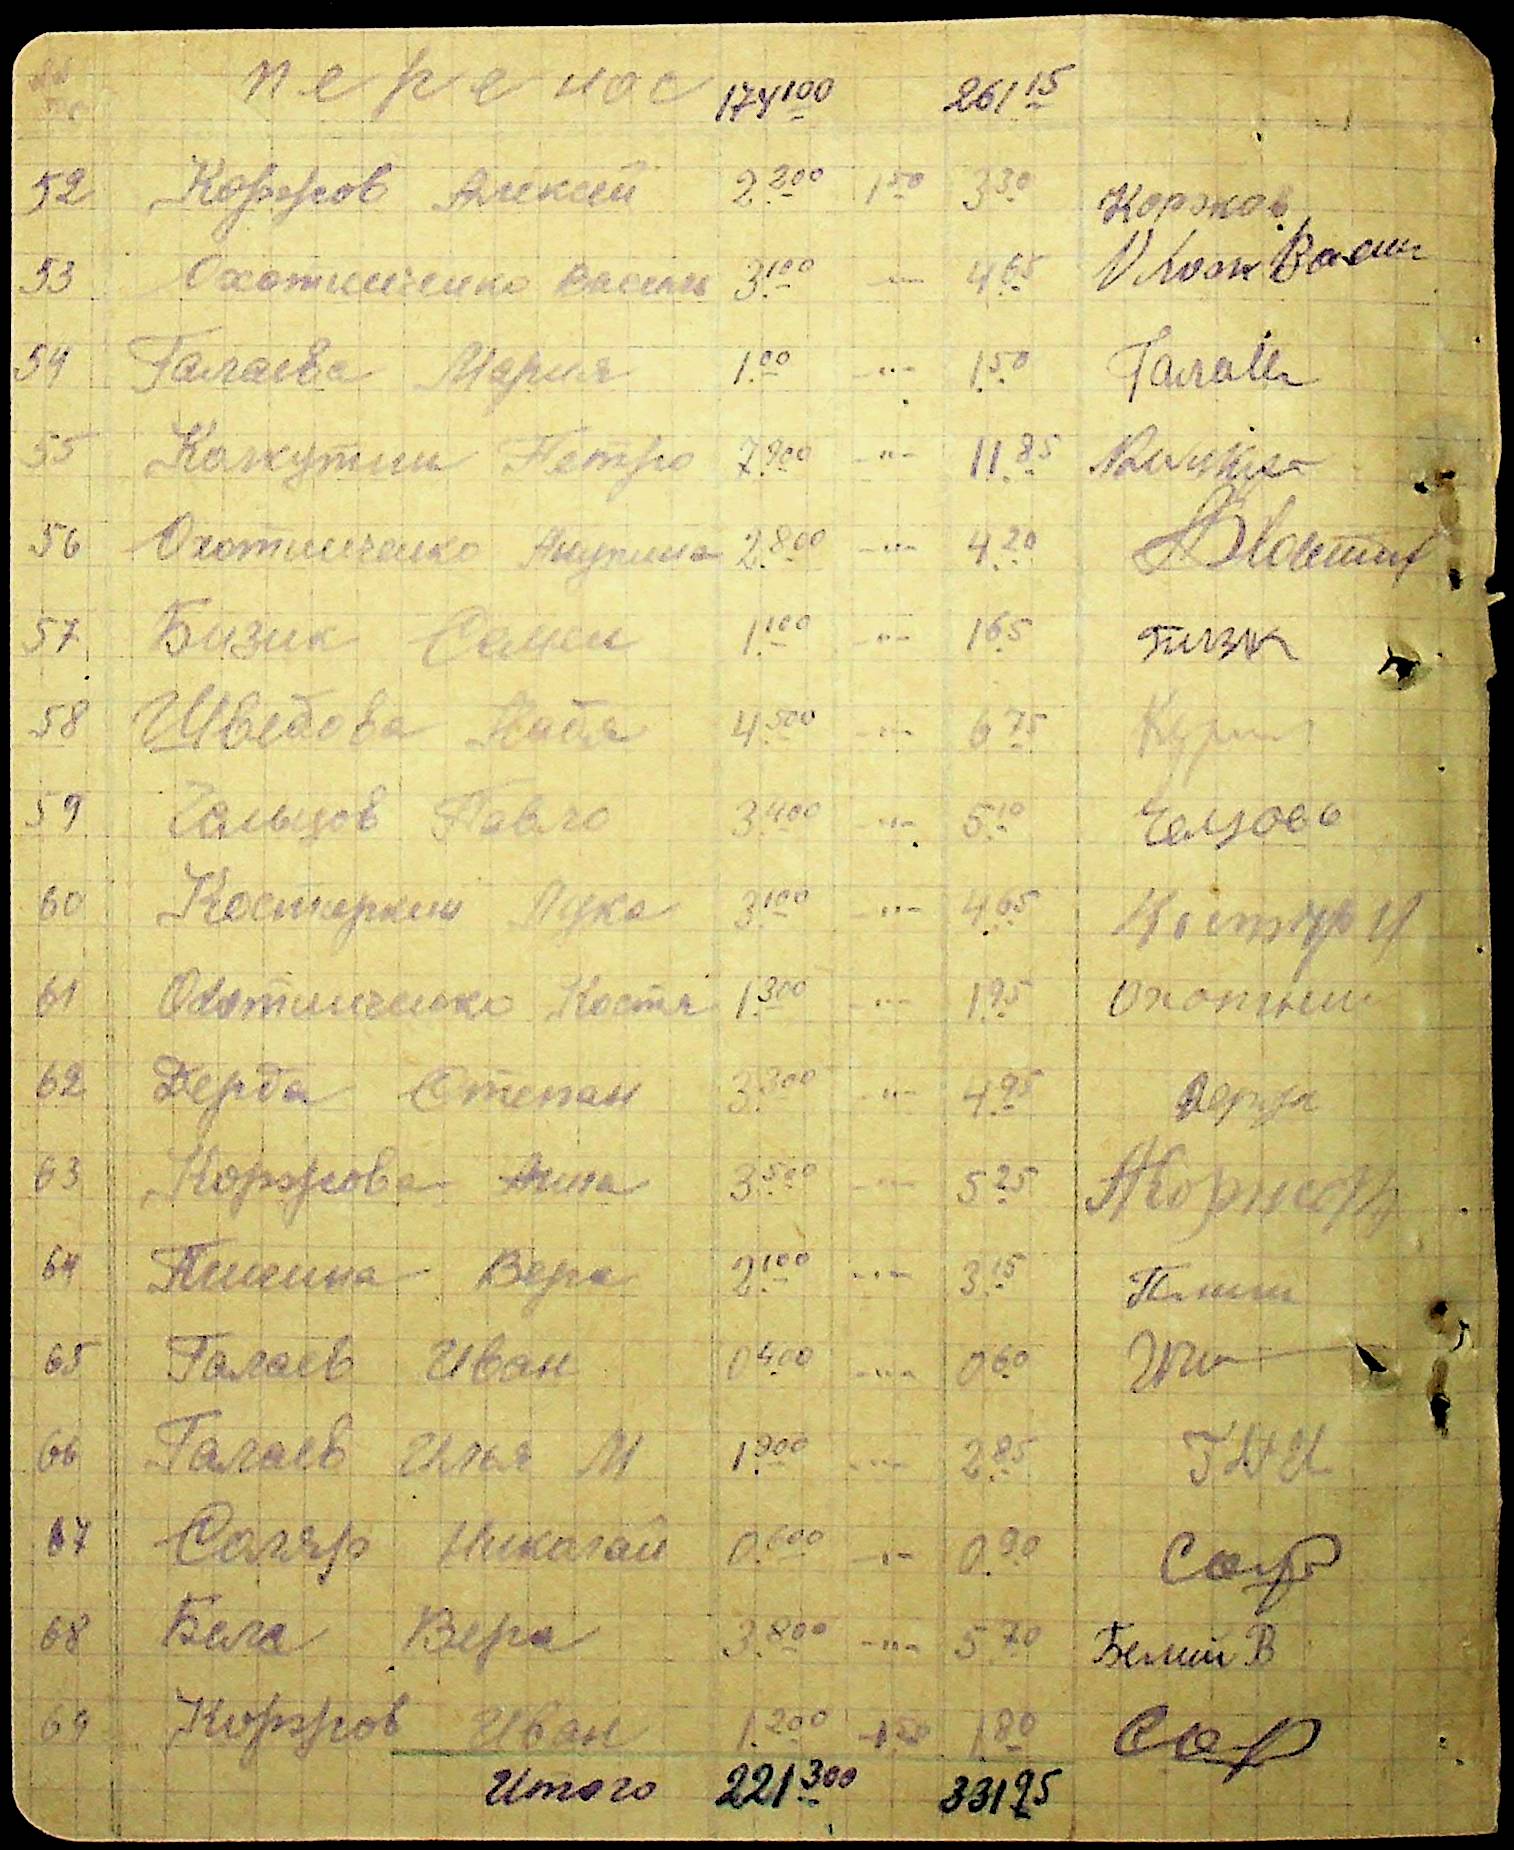 перенос 174 100 261 15
52 Коржов Алексей 2.200 1 50 3 30 Коржов
53 Охотниченко Василь 3.100 —"— 4.65
54 Галаева Мария 1.00 —"— 1.50 Галаев
55 Кажутин Петро 7.900 —"— 11.85
56 Охотниченко Акулина 2.800 —"— 4.20
57 Бизик Семен 1.100 —"— 1 65 Бизик
58 Шведова Надя 4.500 —"— 6 75
59 Чельцов Павло 3.400 —"— 5.10 Челцов
60 Костыркин Лука 3.100 —"— 4.65
61 Охотниченко Костя 1.300 —"— 1.95 Охотнич
62 Дерда Степан 3.300 —"— 4.95 Дерда
63 Коржова Анна 3.500 —"— 5 25
64 Пинина Вера 2.100 —"— 3.15 Пинин
65 Галаев Иван 0 400 —"— 0 60
66 Галаев Илья М 1.900 —"— 2.85
67 Сагяр Николай 0.600 —"— 0.90 Сагр
68 Бела Вера 3.800 —"— 5 70 Белий В
69 Коржов Иван 1.200 1 50 1 80
Итого 221.300 331 95